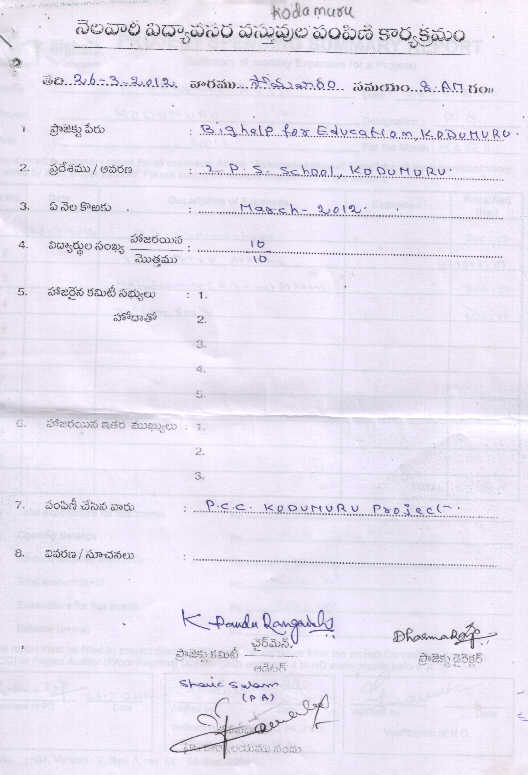 Kodamuru
నెలవారి విద్యావసర వస్తువుల పంపిణి కార్యక్రమం
తేది 26-3-2012 వారము సోమవారం సమయం 8. AM గం॥
1 ప్రాజెక్టు పేరు : Bighelp for Education, KODUMURU.
2. ప్రదేశము / ఆవరణ : Z. P. S. School, KODUMURU.
3. ఏ నెల కొఱకు : March - 2012.
4. విద్యార్థుల సంఖ్య హాజరయిన : 10
మొత్తము 10
5. హాజరైన కమిటీ సభ్యులు : 1.
హోదాతో 2.
3.
4.
5.
6. హాజరయిన ఇతర ముఖ్యులు : 1.
2.
3.
7. పంపిణీ చేసిన వారు : P.C.C. KODUMURU Project.
8. వివరణ / సూచనలు :
K
ప్రాజెక్టు కమిటీ చైర్‌మెన్
ఆడిటర్
ప్రాజెక్టు డైరెక్టర్
Shaic Salam
(PA)